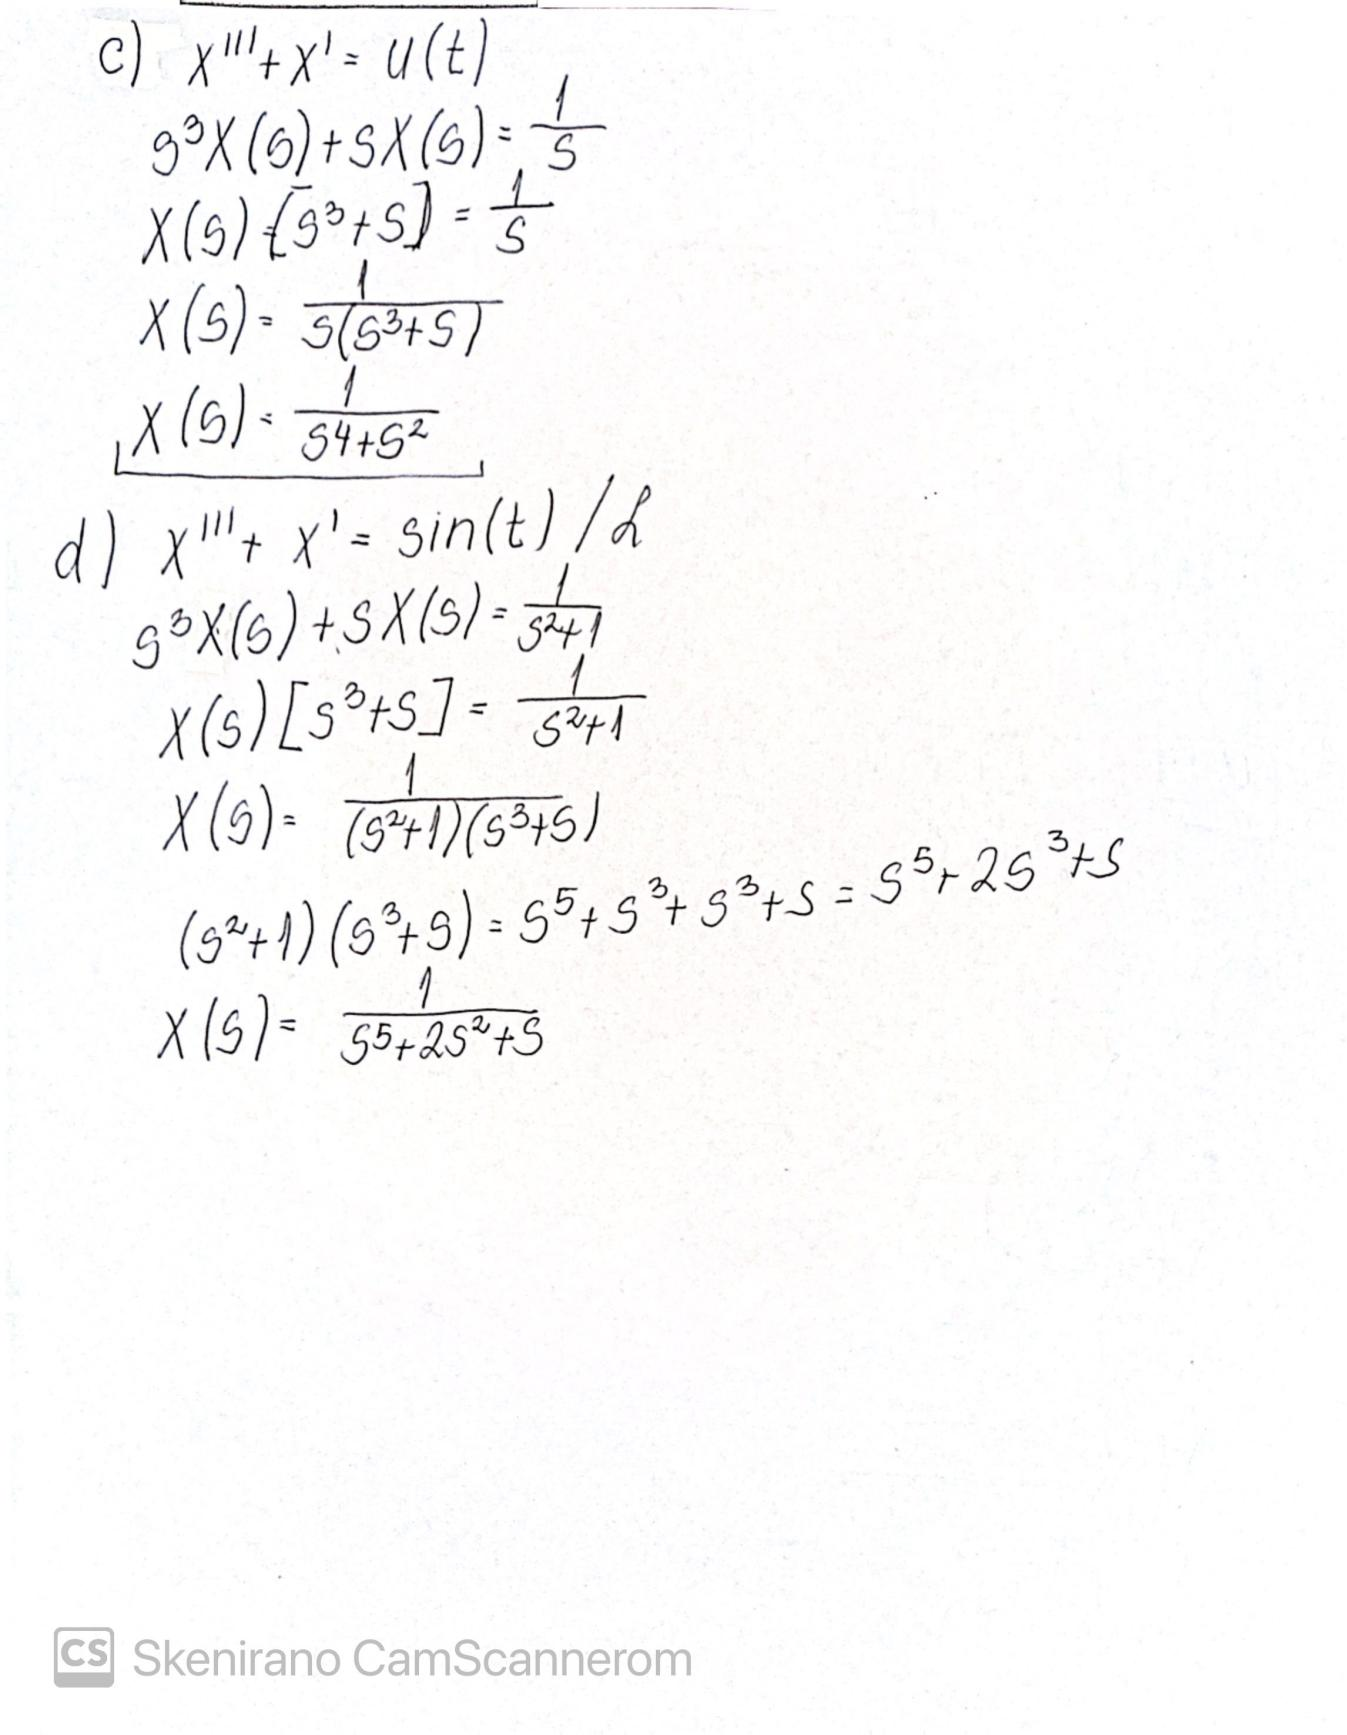 c) x''' + x' = u(t)
s³X(s) + sX(s) = 1/s
X(s) [s³+s] = 1/s
X(s) = 1/(s(s³+s))
X(s) = 1/(s4+s²)
d) x''' + x' = sin(t) /ℒ
s³X(s) + sX(s) = 1/(s²+1)
X(s) [s³+s] = 1/(s²+1)
X(s) = 1/((s²+1)(s³+s))
(s²+1)(s³+s) = s⁵+s³+s³+s = s⁵+2s³+s
X(s) = 1/(s⁵+2s²+s)
CS Skenirano CamScannerom